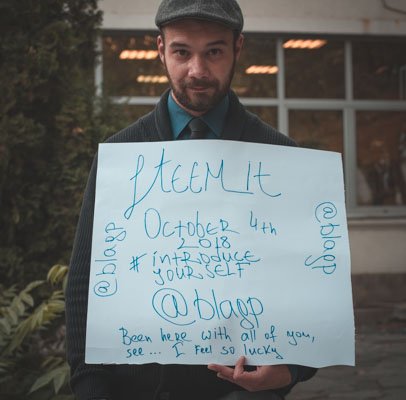 StEEM_It
OctobER 4th
2018
# intRODUCE
YOURSELF
@blagp
@blagp
@blagp
Been here with all of you,
see... I Feel so lucky